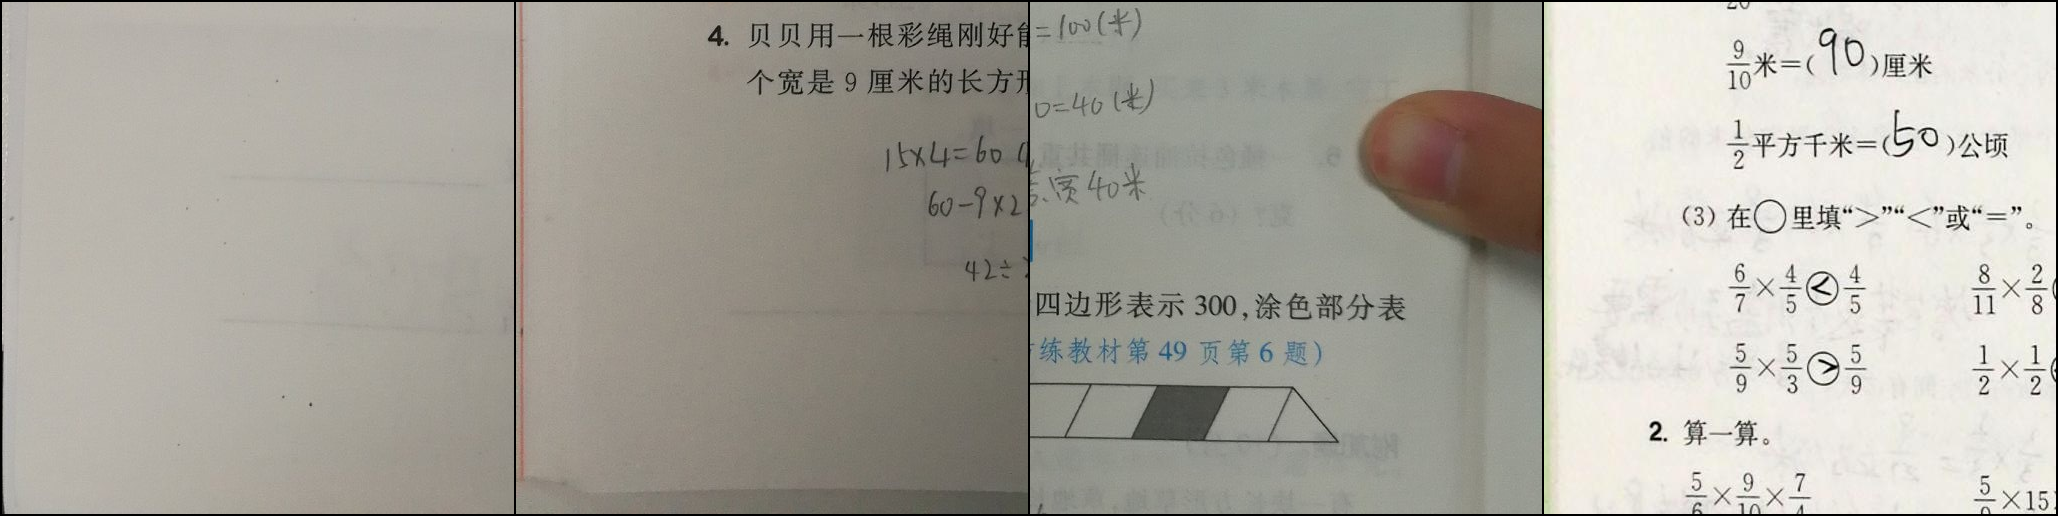 4. 贝贝用一根彩绳刚好
个宽是 9 厘米的长方形
15×4=60
60-9×2
42÷
=100(米)
0=40(米)
宽40米
四边形表示 300,涂色部分表
练教材第 49 页第 6 题)
9/10米=(90)厘米
1/2平方千米=(50)公顷
(3) 在○里填“>”“<”或“=”。
6/7×4/5<4/5 8/11×2/8
5/9×5/3>5/9 1/2×1/2
2. 算一算。
5/6×9/10×7/4 5/9×15